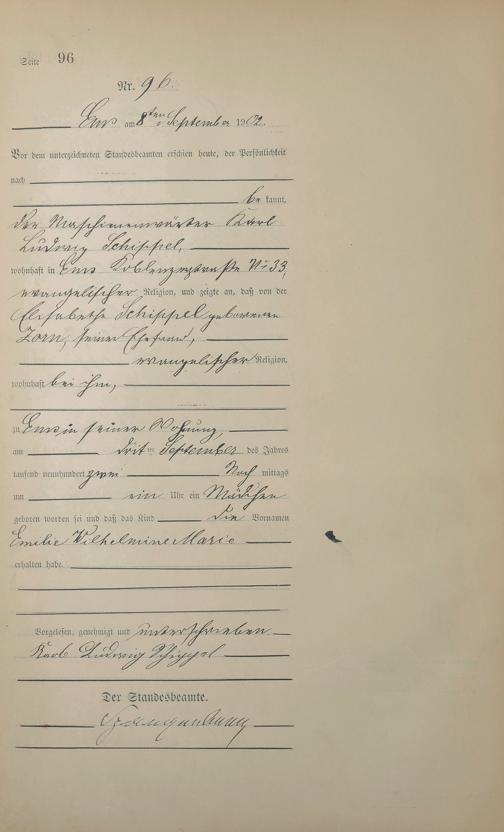 Seite 96
Nr. 96.
Ems am 8ten September 1902.
Vor dem unterzeichneten Standesbeamten erschien heute, der Persönlichkeit
nach
be kannt,
der Maschienenwärter Karl
Ludwig Schippel,
wohnhaft in Ems Koblenzerstraße No 33,
evangelischer Religion, und zeigte an, daß von der
Elisabethe Schippel geborenen
Zorn, seiner Ehefrau,
evangelischer Religion,
wohnhaft bei ihm,
zu Ems in seiner Wohnung,
am dritten September des Jahres
tausend neunhundert zwei Nach mittags
um ein Uhr ein Mädchen
geboren worden sei und daß das Kind die Vornamen
Emilie Wilhelmine Marie
erhalten habe.
Vorgelesen, genehmigt und unterschrieben
Karl Ludwig Schippel
Der Standesbeamte.